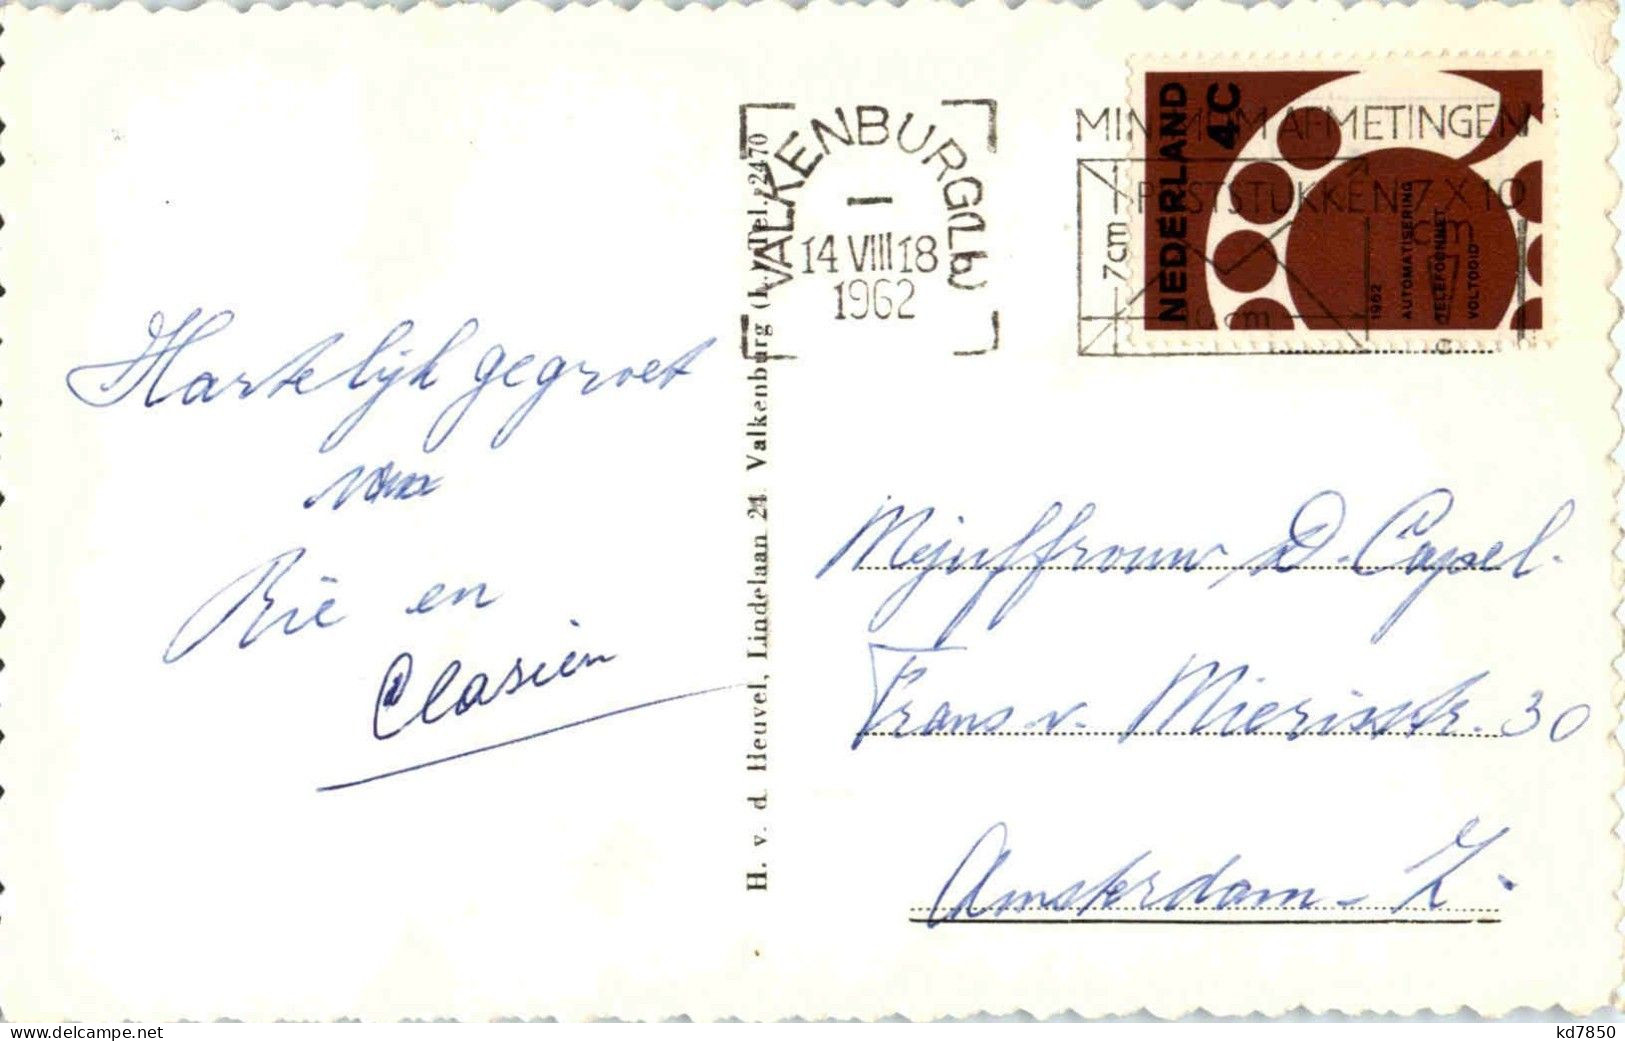 Hartelijk gegroet
van
Rie en
Clasien
H. v. d. Heuvel, Lindelaan 24 Valkenburg (L.) Tel. 2470
VALKENBURG(Lb)
14 VIII 18
1962
MINIMUM AFMETINGEN
POSTSTUKKEN 7 X 10
cm
7cm
10 cm
NEDERLAND
4C
1962
AUTOMATISERING
TELEFOONNET
VOLTOOID
Mejuffrouw D. Capel.
Frans v. Mierisstr. 30
Amsterdam - Z.
www.delcampe.net
kd7850